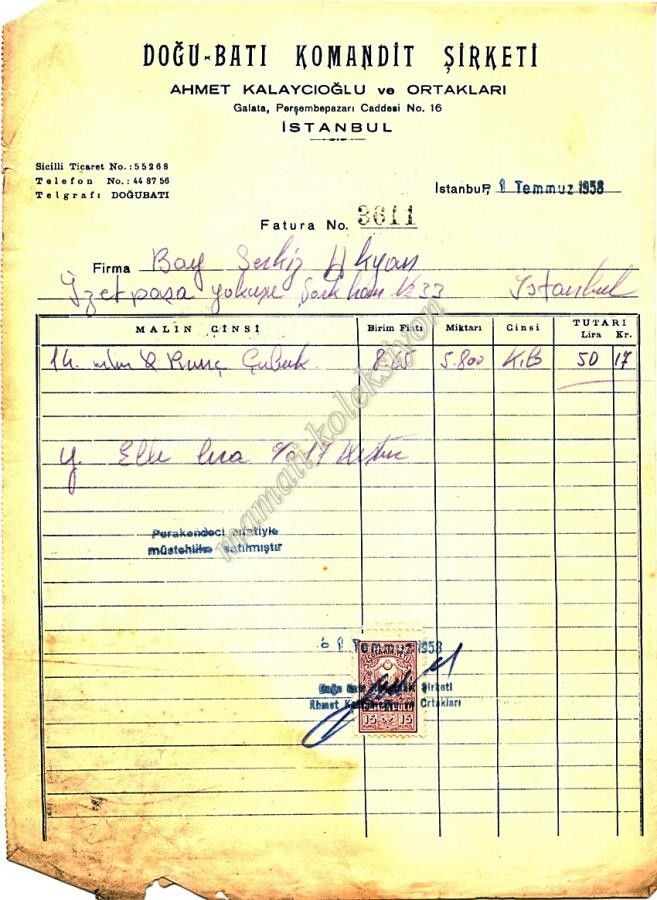 DOĞU-BATI KOMANDİT ŞİRKETİ
AHMET KALAYCIOĞLU ve ORTAKLARI
Galata, Perşembepazarı Caddesi No. 16
İSTANBUL
Sicilli Ticaret No.: 55268
Telefon No.: 44 87 56
Telgraf: DOĞUBATI
İstanbul, 1 Temmuz 1958
Fatura No. 3611
Firma Bay Serkiz Akyan
İzzetpaşa yokuşu Şark han İstanbul
MALIN CİNSİ Birim Fiatı Miktarı Cinsi TUTARI
Lira Kr.
14 m/m Çubuk 8.65 5.800 50 17
Y. Elli lira 17
Perakendeci fiatiyle
müstehlike satılmıştır
1 Temmuz 1958
Şirketi
Ahmet ve Ortakları
15 15
mamati-koleksiyon